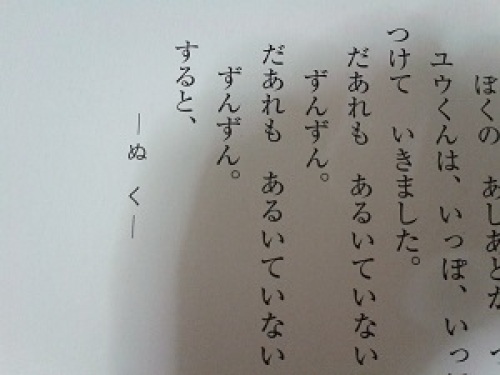 ぼくの　あしあとが　つ
ユウくんは、いっぽ、いっぽ
つけて　いきました。
だあれも　あるいていない
ずんずん。
だあれも　あるいていない
ずんずん。
すると、
―ぬ　く―